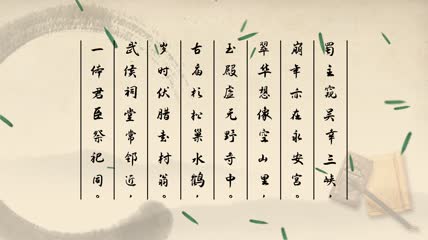 蜀主窥吴幸三峡，
崩年亦在永安宫。
翠华想像空山里，
玉殿虚无野寺中。
古庙杉松巢水鹤，
岁时伏腊走村翁。
武侯祠堂常邻近，
一体君臣祭祀同。